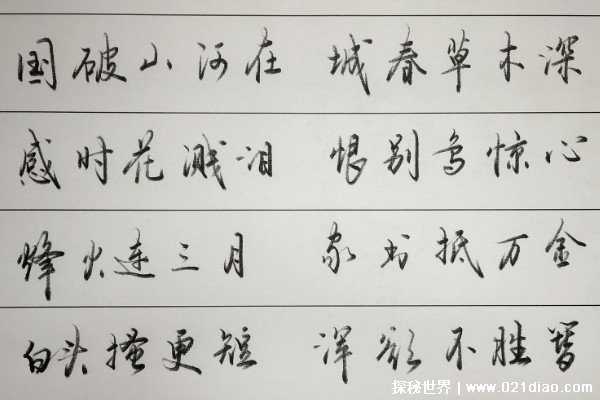 国破山河在 城春草木深
感时花溅泪 恨别鸟惊心
烽火连三月 家书抵万金
白头搔更短 浑欲不胜簪
探秘世界 www.021diao.com